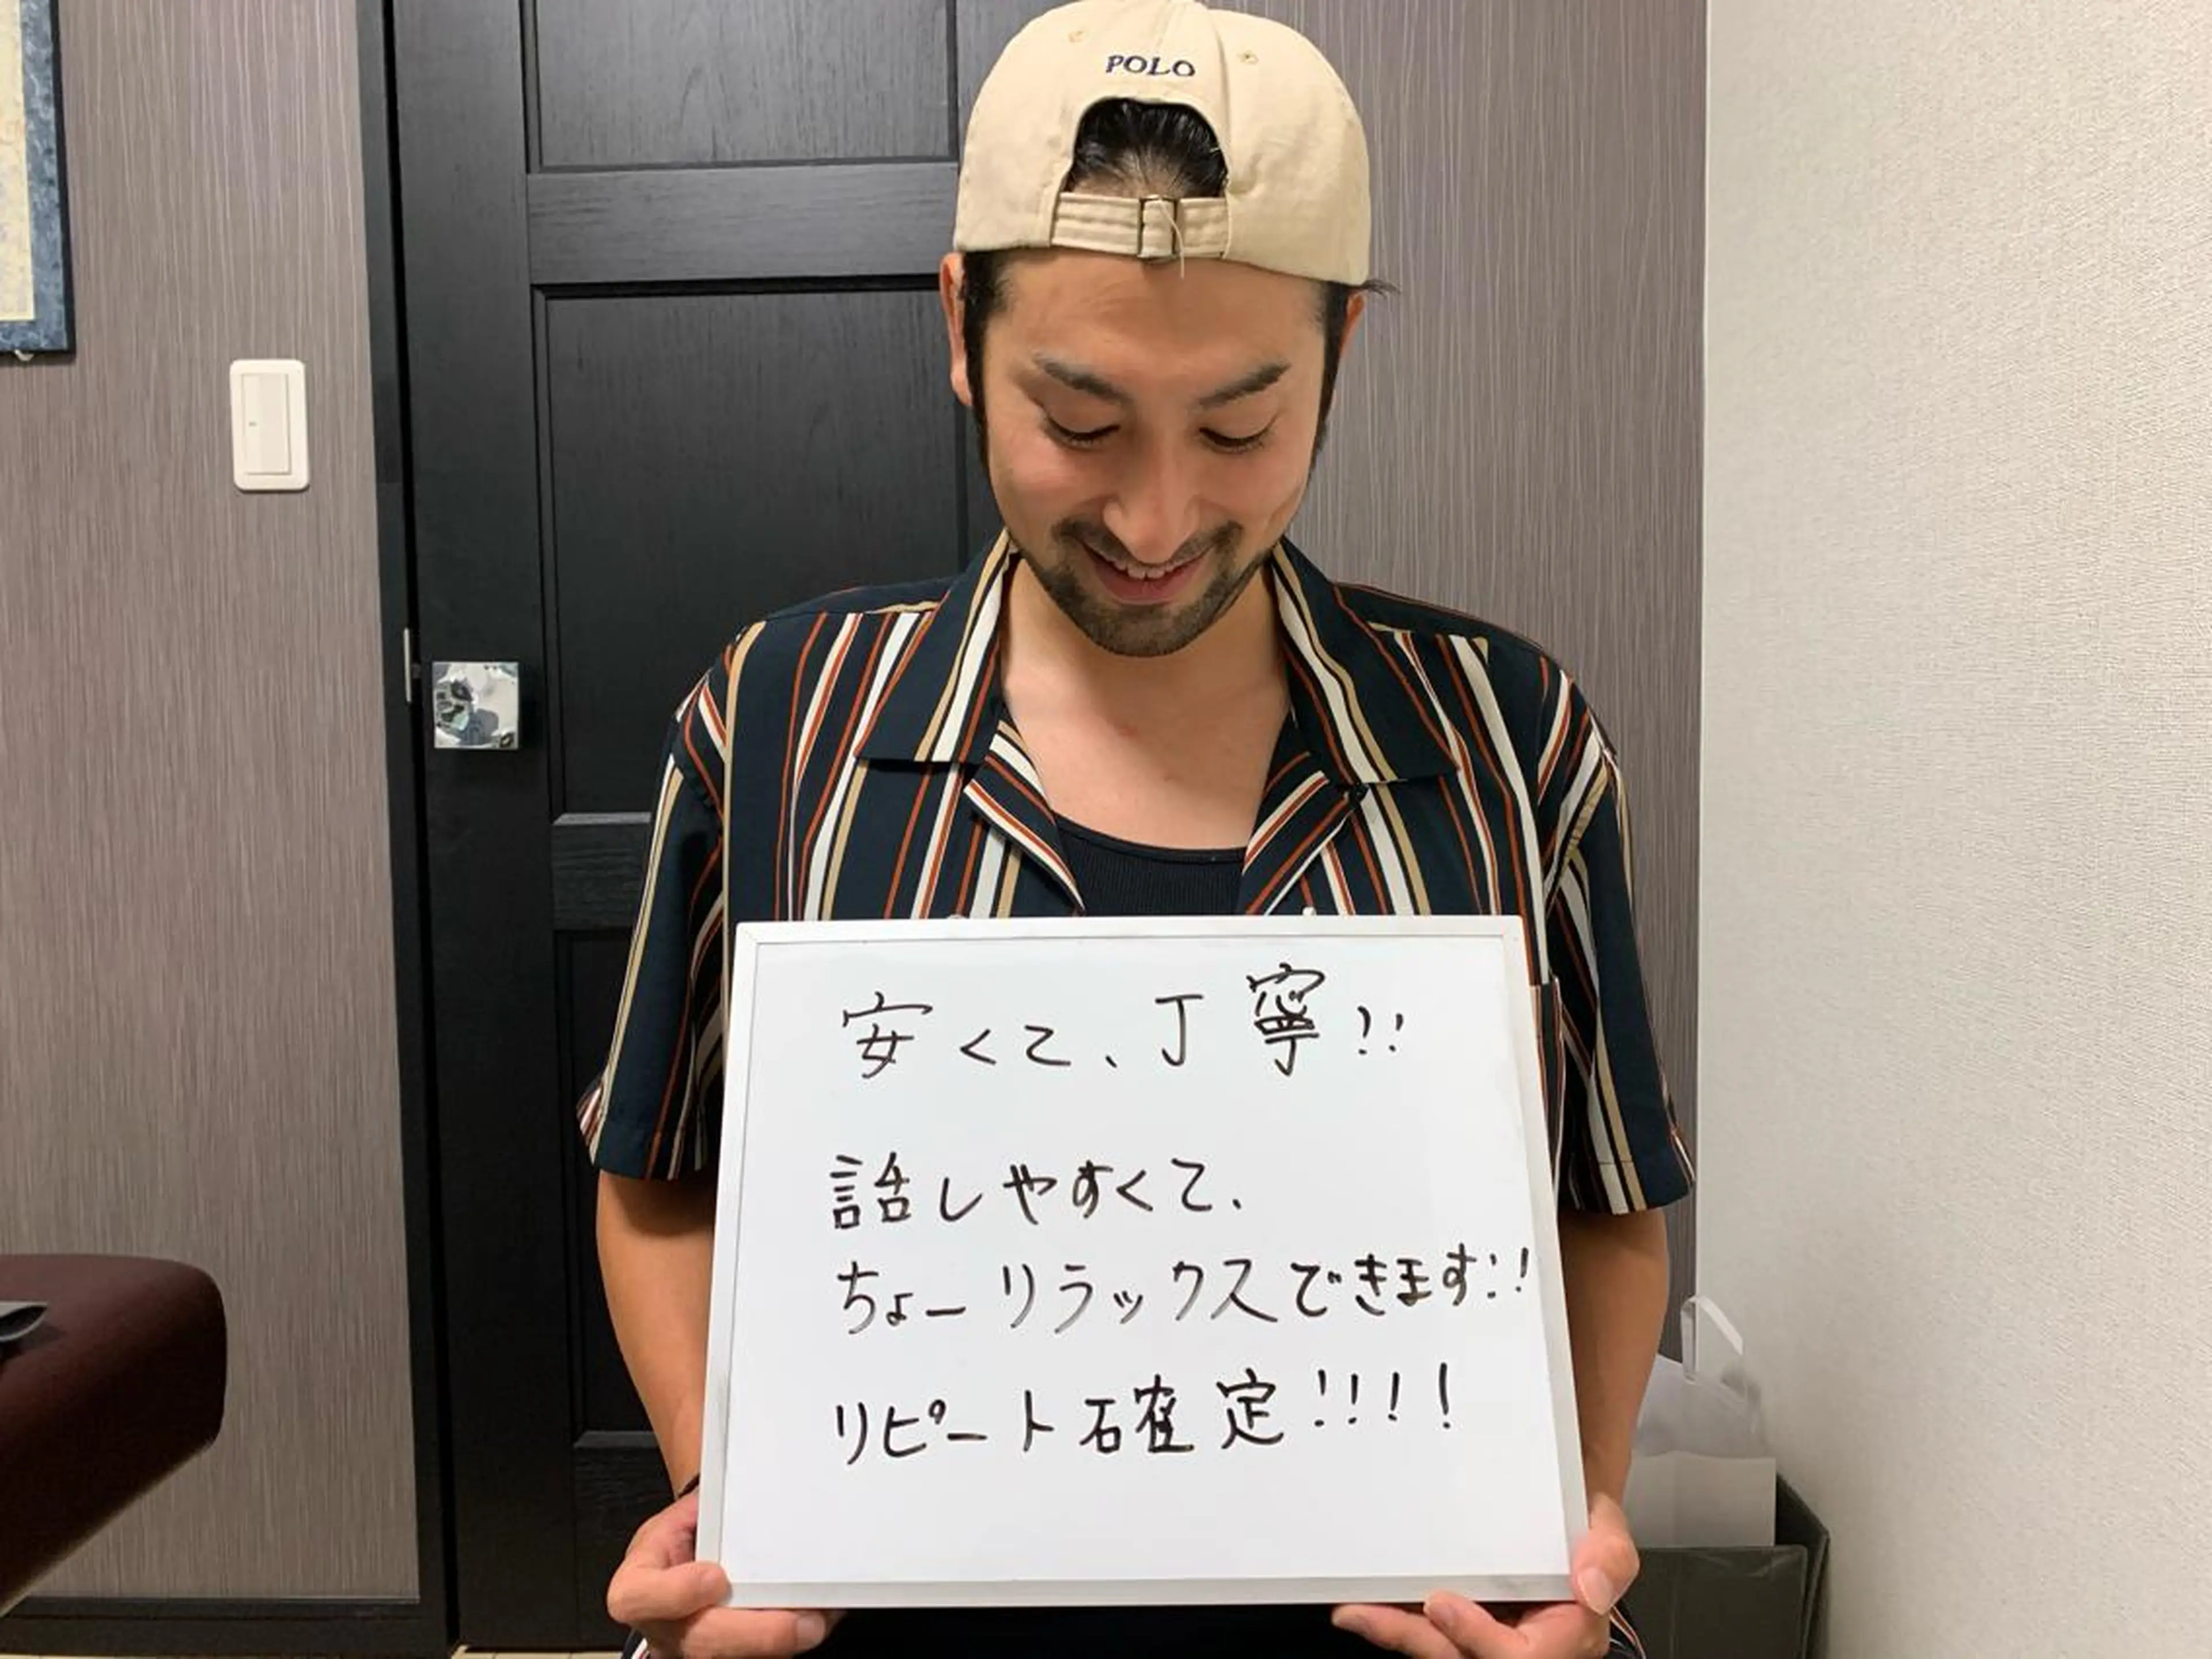 POLO
安くて、丁寧!!
話しやすくて、
ちょーリラックスできます!!
リピート確定!!!!